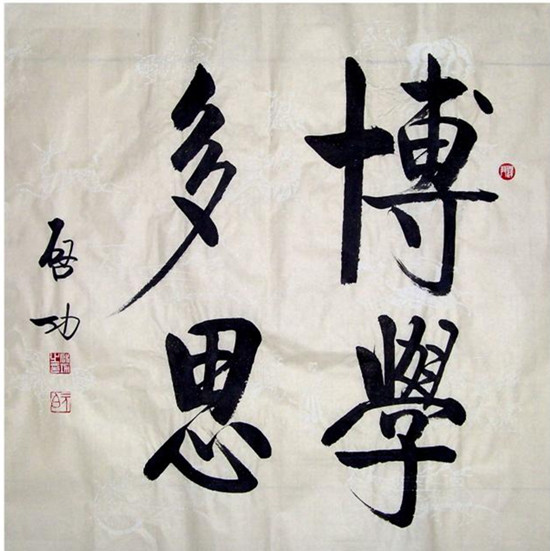 博學
多思
啟功